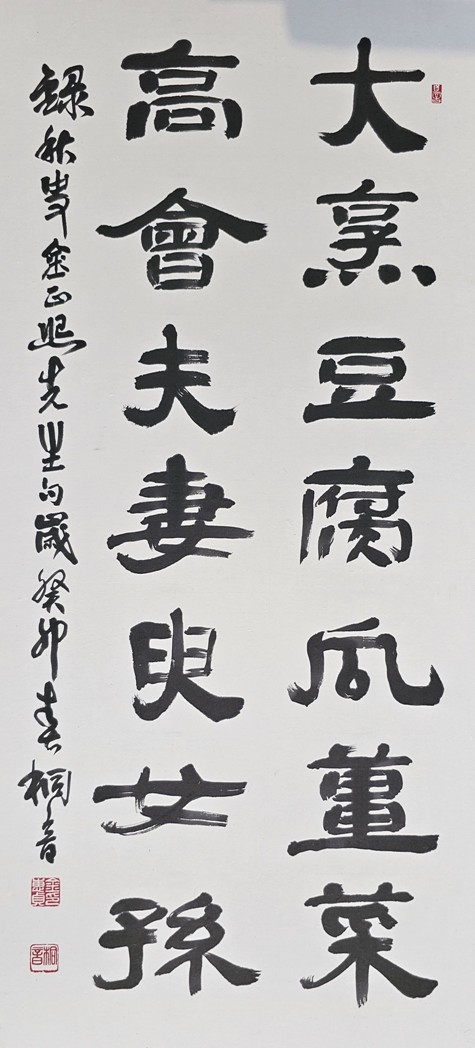 大烹豆腐瓜薑菜
高會夫妻兒女孫
錄秋史金正熙先生句歲癸卯春桐音
桐音